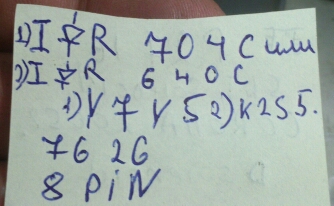 1) I R 704C или
2) I R 640C
1) Y7Y5 2) K2S5.
7626
8 PiN